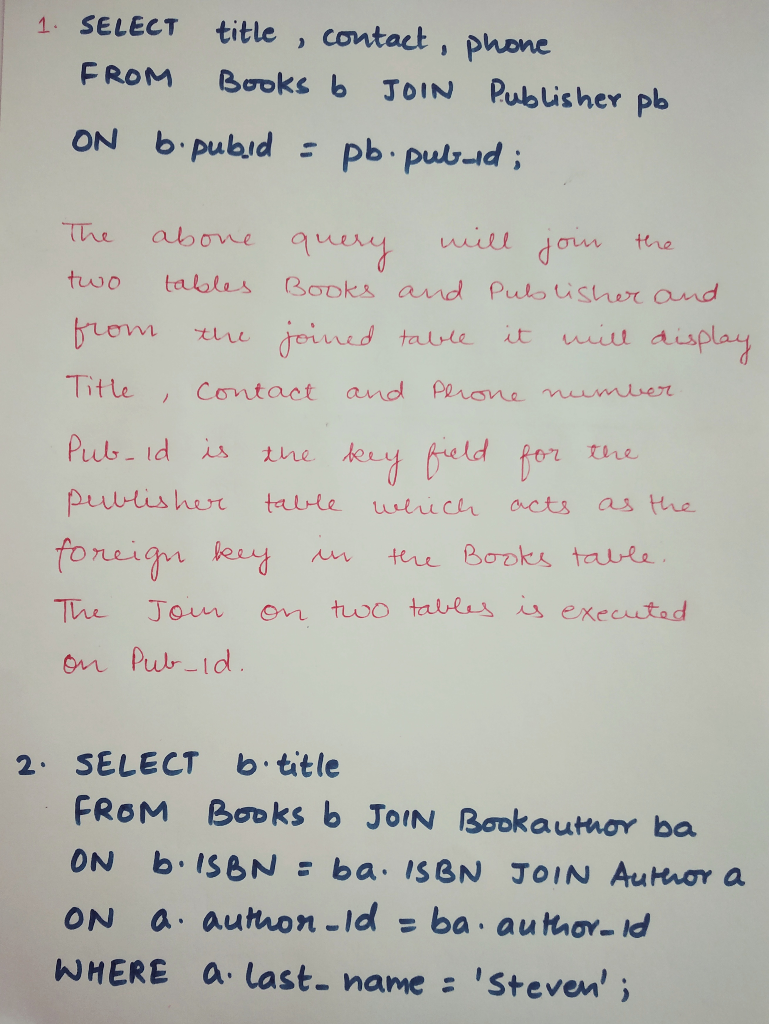 1. SELECT title , contact , phone
FROM Books b JOIN Publisher pb
ON b.pubid = pb.pub_id ;
The above query will join the
two tables Books and Publisher and
from the joined table it will display
Title , Contact and Phone number
Pub_id is the key field for the
publisher table which acts as the
foreign key in the Books table.
The Join on two tables is executed
on Pub_id.
2. SELECT b.title
FROM Books b JOIN Bookauthor ba
ON b.ISBN = ba.ISBN JOIN Author a
ON a.author_id = ba.author_id
WHERE a.last_name = 'Steven' ;